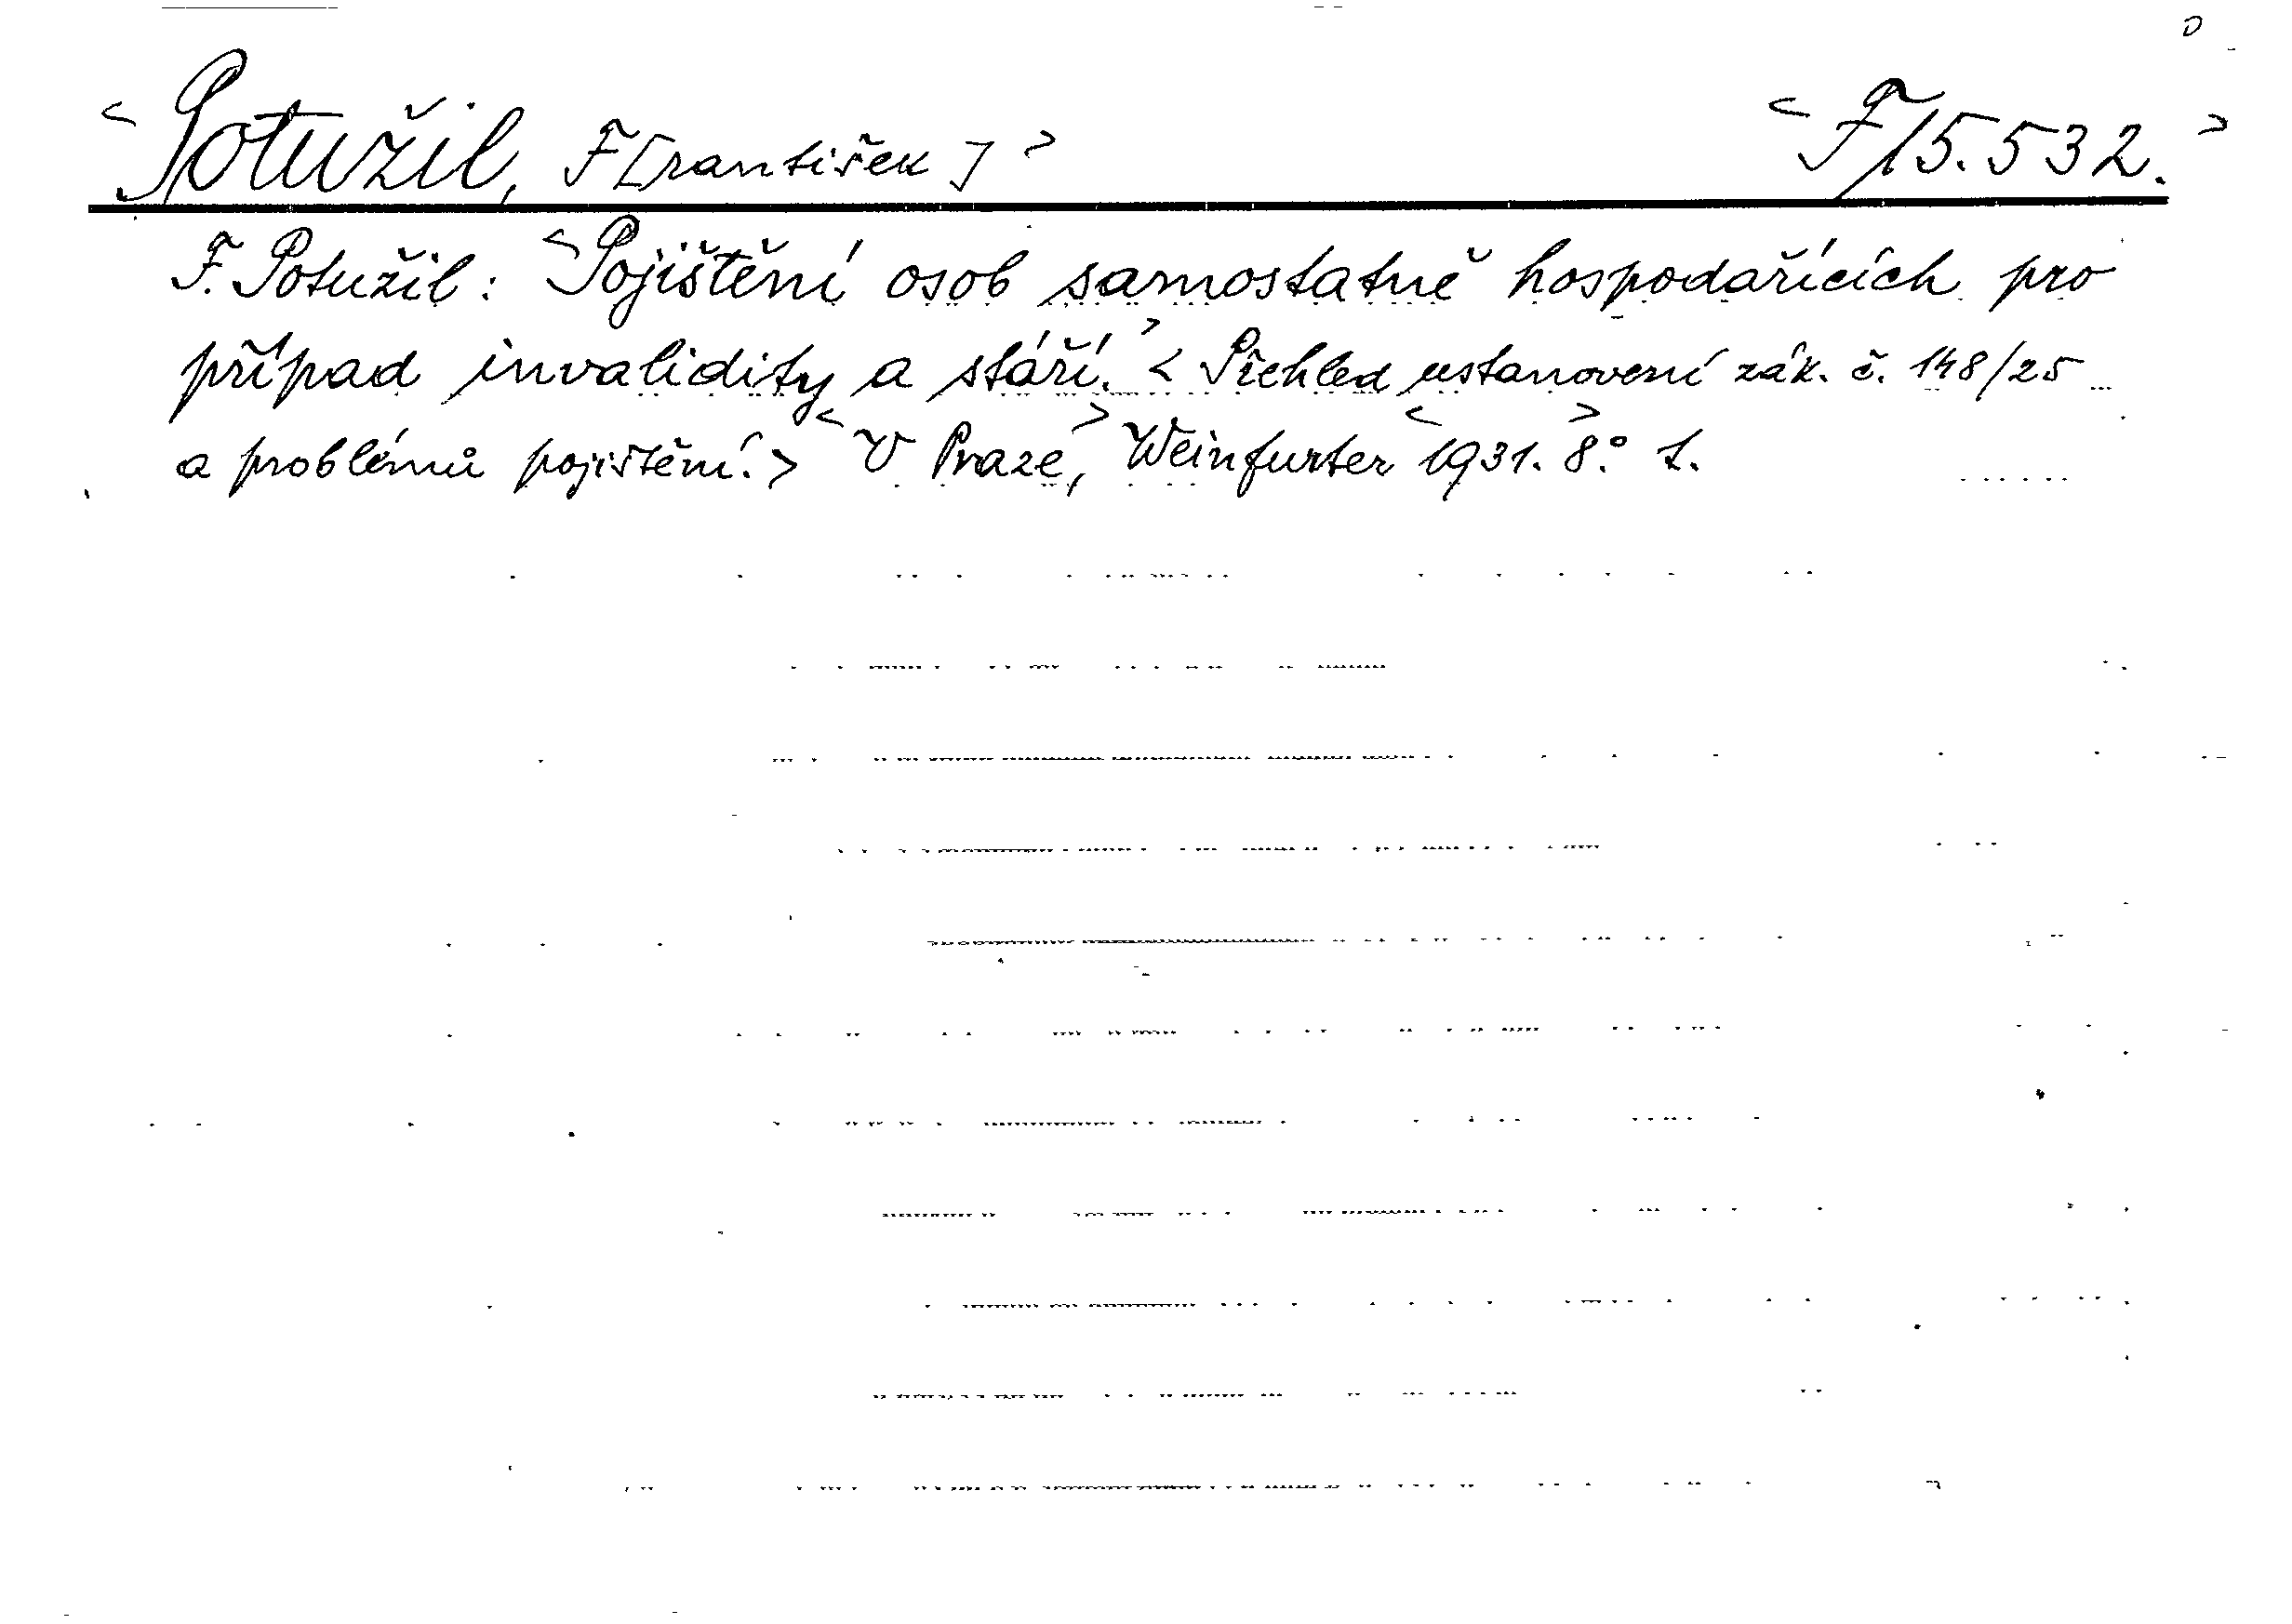 <Potužil, F[rantišek]> <F 15.532.>
F. Potužil: <Pojištění osob samostatně hospodařících pro
případ invalidity a stáří.> <Přehled ustanovení zák. č. 148/25
a problémů pojištění.> <V Praze>, Weinfurter <1931. 8.°> 1.